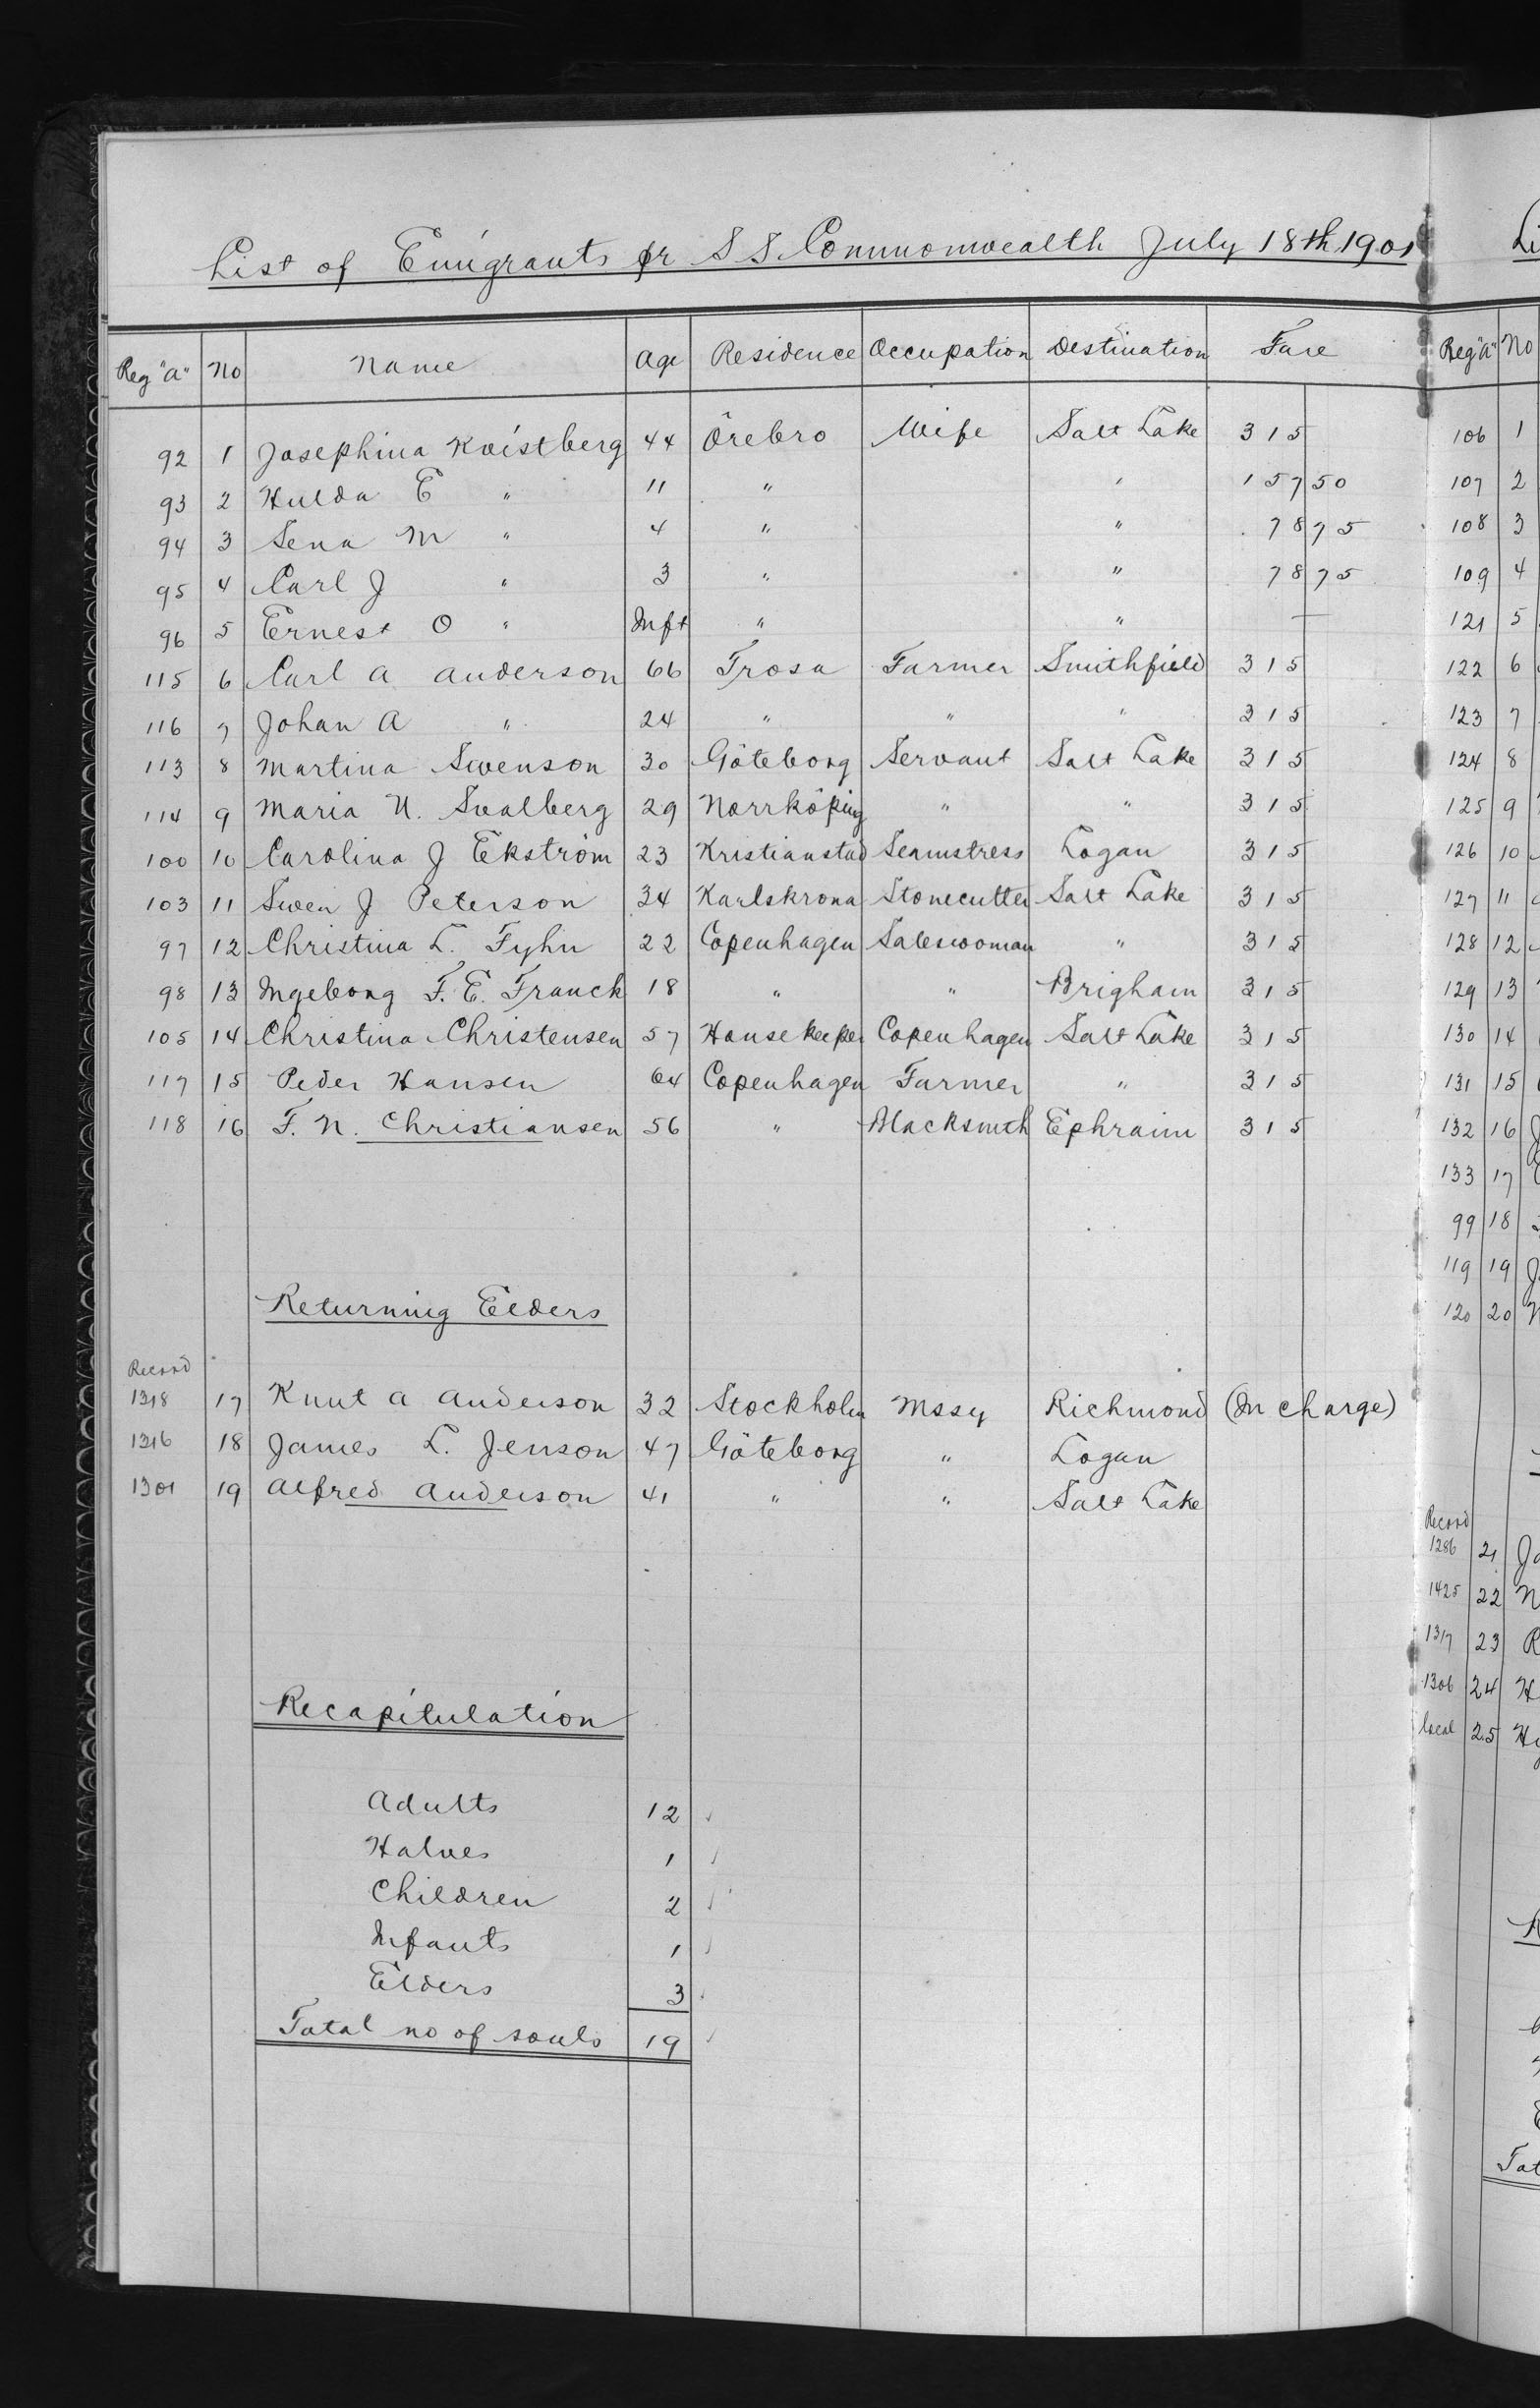 List of Emigrants pr S S. Commonwealth July 18th 1901
Reg "A" No Name Age Residence Occupation Destination Fare
92 1 Josephina Kvistberg 44 Örebro Wife Salt Lake 315
93 2 Hulda E " 11 " " 157 50
94 3 Sena M " 4 " " 78 75
95 4 Carl J " 3 " " 78 75
96 5 Ernest O " Inft " " —
115 6 Carl A Anderson 66 Trosa Farmer Smithfield 315
116 7 Johan A " 24 " " " 315
113 8 Martina Swenson 30 Göteborg Servant Salt Lake 315
114 9 Maria U. Svalberg 29 Norrköping " " 315
100 10 Carolina J Ekström 23 Kristianstad Seamstress Logan 315
103 11 Swen J Peterson 34 Karlskrona Stonecutter Salt Lake 315
97 12 Christina L. Fyhn 22 Copenhagen Saleswoman " 315
98 13 Ingeborg F. E. Franck 18 " " Brigham 315
105 14 Christina Christensen 57 Housekeeper Copenhagen Salt Lake 315
117 15 Peder Hansen 64 Copenhagen Farmer " 315
118 16 F. N. Christiansen 56 " Blacksmith Ephraim 315
Returning Elders
Record
1318 17 Knut A Anderson 32 Stockholm Mssy Richmond (In charge)
1316 18 James L. Jenson 47 Göteborg " Logan
1301 19 Alfred Anderson 41 " " Salt Lake
Recapitulation
Adults 12
Halves 1
Children 2
Infants 1
Elders 3
Total no of souls 19
Li
Reg "A" No
106 1
107 2
108 3
109 4
121 5
122 6
123 7
124 8
125 9
126 10
127 11
128 12
129 13
130 14
131 15
132 16
133 17
99 18
119 19
120 20
Record
1286 21 Ja
1425 22 N
1317 23 R
1306 24 H
local 25 Hy
Tot